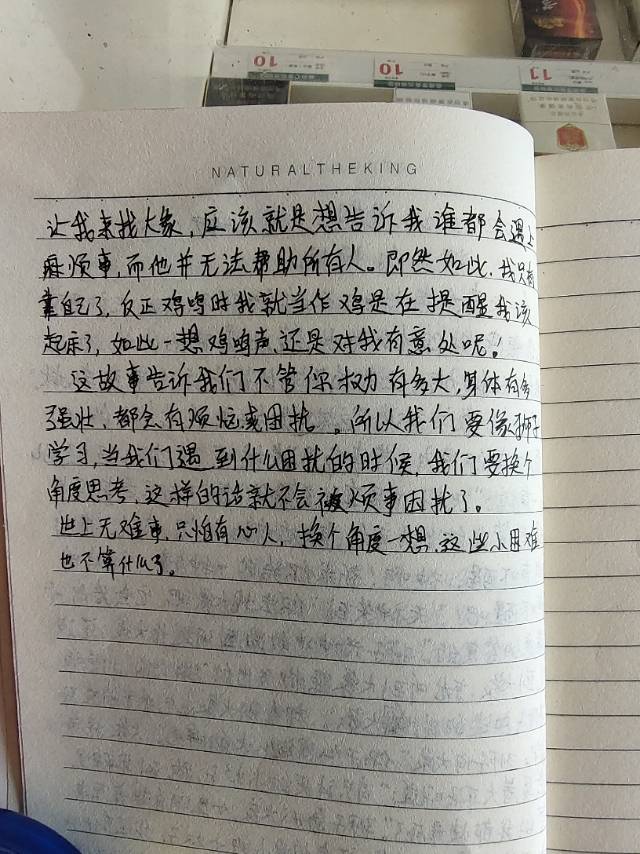 10
10
11
NATURALTHEKING
让我来找大象,应该就是想告诉我谁都会遇上
麻烦事,而他并无法帮助所有人。即然如此,我只有
靠自己了,反正鸡鸣时我就当作鸡是在提醒我该
起床了,如此一想鸡鸣声还是对我有意处呢!
这故事告诉我们不管你权力有多大,身体有多
强壮,都会有烦恼或困扰。所以我们要像狮子
学习,当我们遇到什么困扰的时候,我们要换个
角度思考,这样的话就不会被烦事困扰了。
世上无难事,只怕有心人,换个角度一想,这些小困难
也不算什么了。